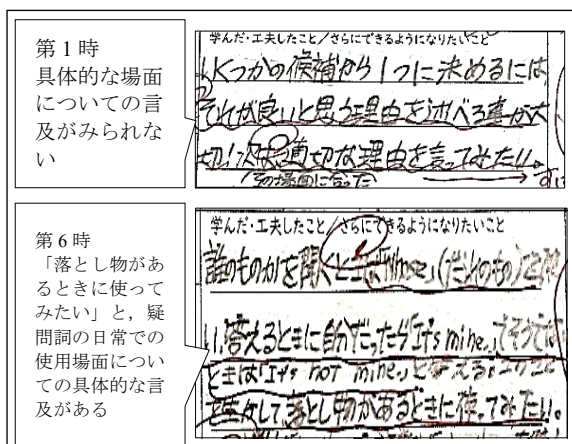 第1時
具体的な場面
についての言
及がみられな
い
学んだ・工夫したこと/さらにできるようになりたいこと
いくつかの候補から1つに決めるには
それが良いと思う理由を述べる事が大
切!次は、適切な理由を言ってみたい。
その場面に合った
第6時
「落とし物があ
るときに使って
みたい」と,疑
問詞の日常での
使用場面につい
ての具体的な言
及がある
学んだ・工夫したこと/さらにできるようになりたいこと
誰のものかを聞くときは「Whose」(だれのもの)を使
い、答えるときに自分だったら「It's mine.」でそうでない
ときは「It's not mine.」と答える。
落とし物があるときに使ってみたい。